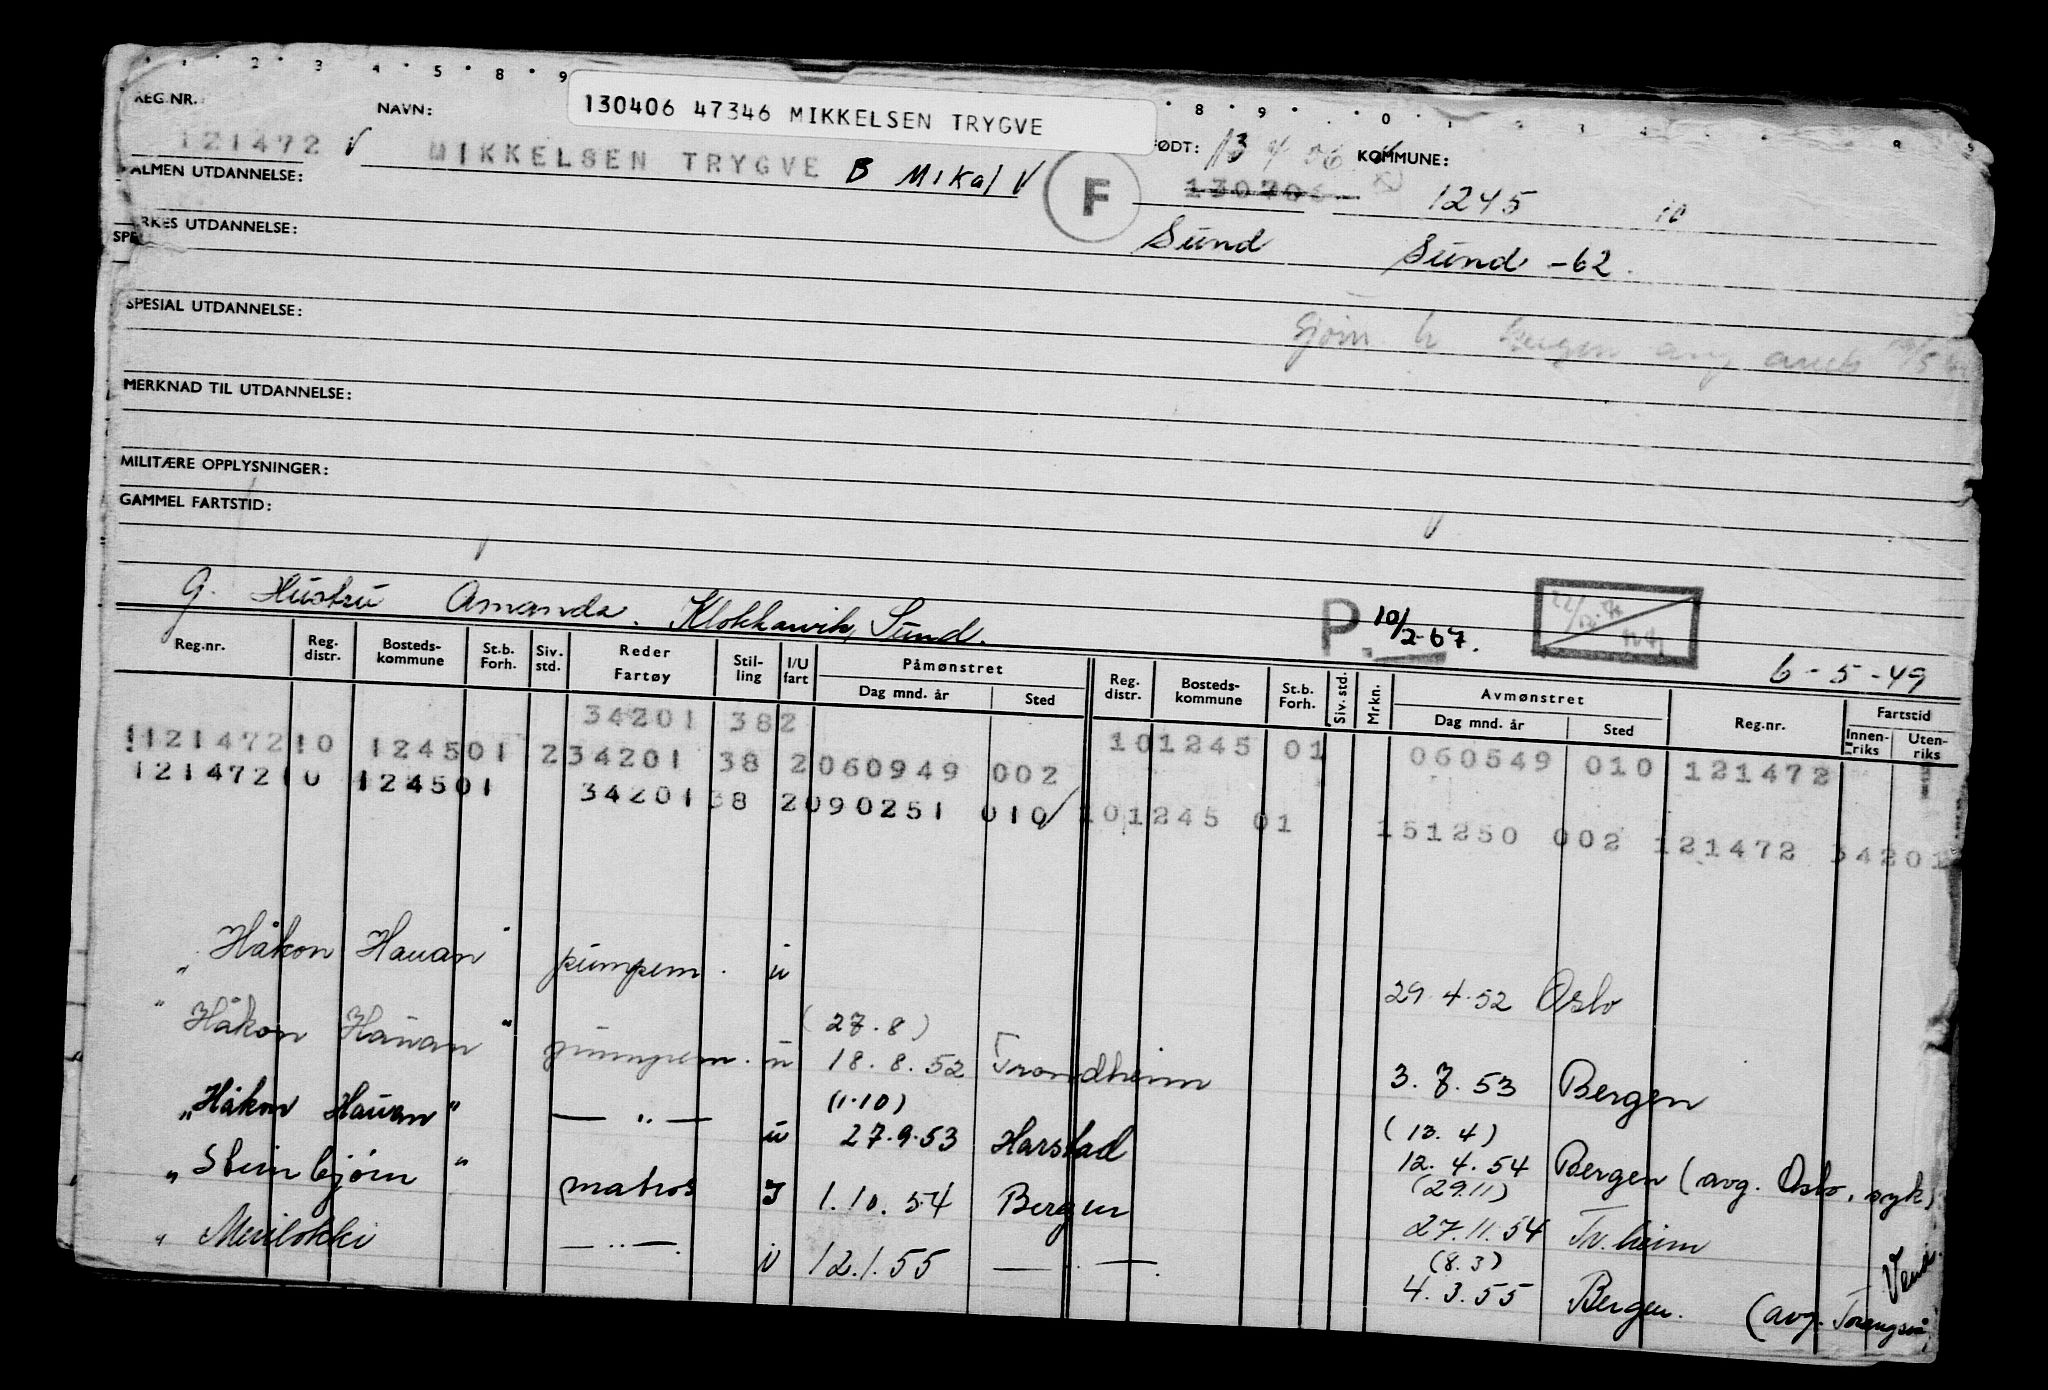 1 2 3 4 5 8 9 8 9 0
130406 47346 MIKKELSEN TRYGVE
REG.NR. NAVN: FØDT: 13 4 06 KOMMUNE:
121472 V MIKKELSEN TRYGVE B Mikal V F 130706 1245 10
ALMEN UTDANNELSE:
YRKES UTDANNELSE: Sund Sund -62.
SPE
SPESIAL UTDANNELSE:
Bergen ang
MERKNAD TIL UTDANNELSE:
MILITÆRE OPPLYSNINGER:
GAMMEL FARTSTID:
G. Hustru Amanda. Klokkarvik, Sund. P. 10/2-67.
6-5-49
Reg.nr. Reg. distr. Bosteds-kommune St.b. Forh. Siv. std. Reder Fartøy Stil-ling I/U fart Påmønstret Dag mnd. år Sted Reg. distr. Bosteds-kommune St.b. Forh. Siv. std. Mrkn. Avmønstret Dag mnd. år Sted Reg.nr. Fartstid Innen-riks Uten-riks
34201 382 101245 01 060549 010 121472
121472 10 124501 2 34201 38 2 060949 002 101245 01 151250 002 121472 34201
121472 10 124501 34201 38 2 090251 010
" Håkon Hauan " pumpem. u 29.4.52 Oslo
(27.8)
" Håkon Hauan " pumpem. u 18.8.52 Trondheim 3.7.53 Bergen
(1.10) (13.4)
" Håkon Hauan " — " — u 27.9.53 Harstad 12.4.54 Bergen (avg. Oslo, syk)
(29.11)
" Steinbjørn " matros I 1.10.54 Bergen 27.11.54 Tr.heim
(8.3)
" Merilokki — " —. u 12.1.55 — " —. 4.3.55 Bergen. (avg.
Vend